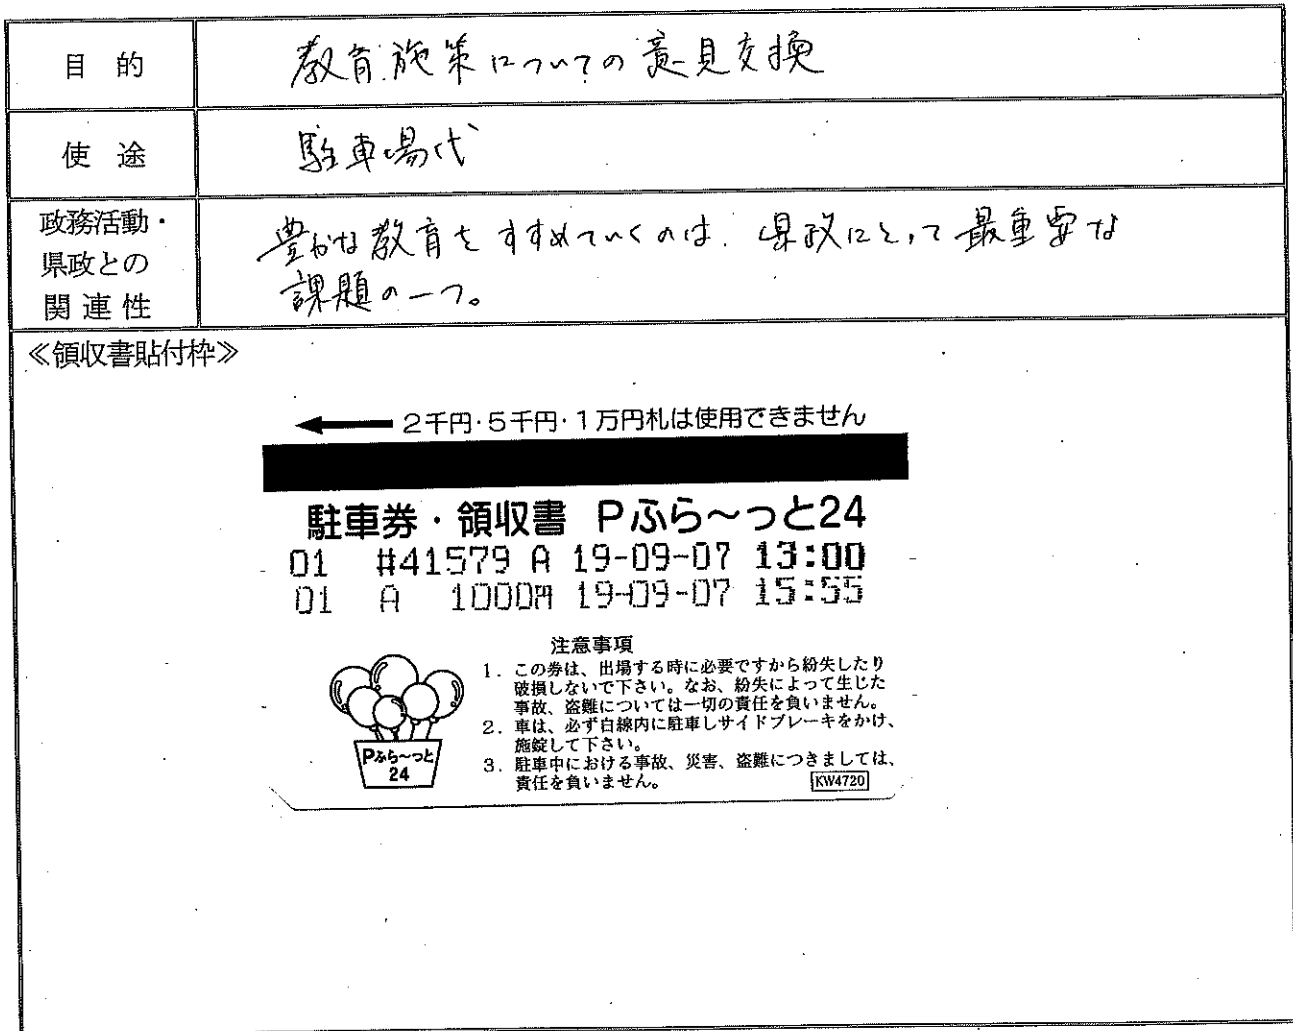 目的
教育施策についての意見交換
使途
駐車場代
政務活動・
県政との
関連性
豊かな教育をすすめていくのは、県政にとって最重要な
課題の一つ。
≪領収書貼付枠≫
2千円・5千円・1万円札は使用できません
駐車券・領収書 Pふら～っと24
01 #41579 A 19-09-07 13:00
01 A 1000円 19-09-07 15:55
注意事項
1. この券は、出場する時に必要ですから紛失したり
破損しないで下さい。なお、紛失によって生じた
事故、盗難については一切の責任を負いません。
2. 車は、必ず白線内に駐車しサイドブレーキをかけ、
施錠して下さい。
3. 駐車中における事故、災害、盗難につきましては、
責任を負いません。
KW4720
Pふら～っと
24